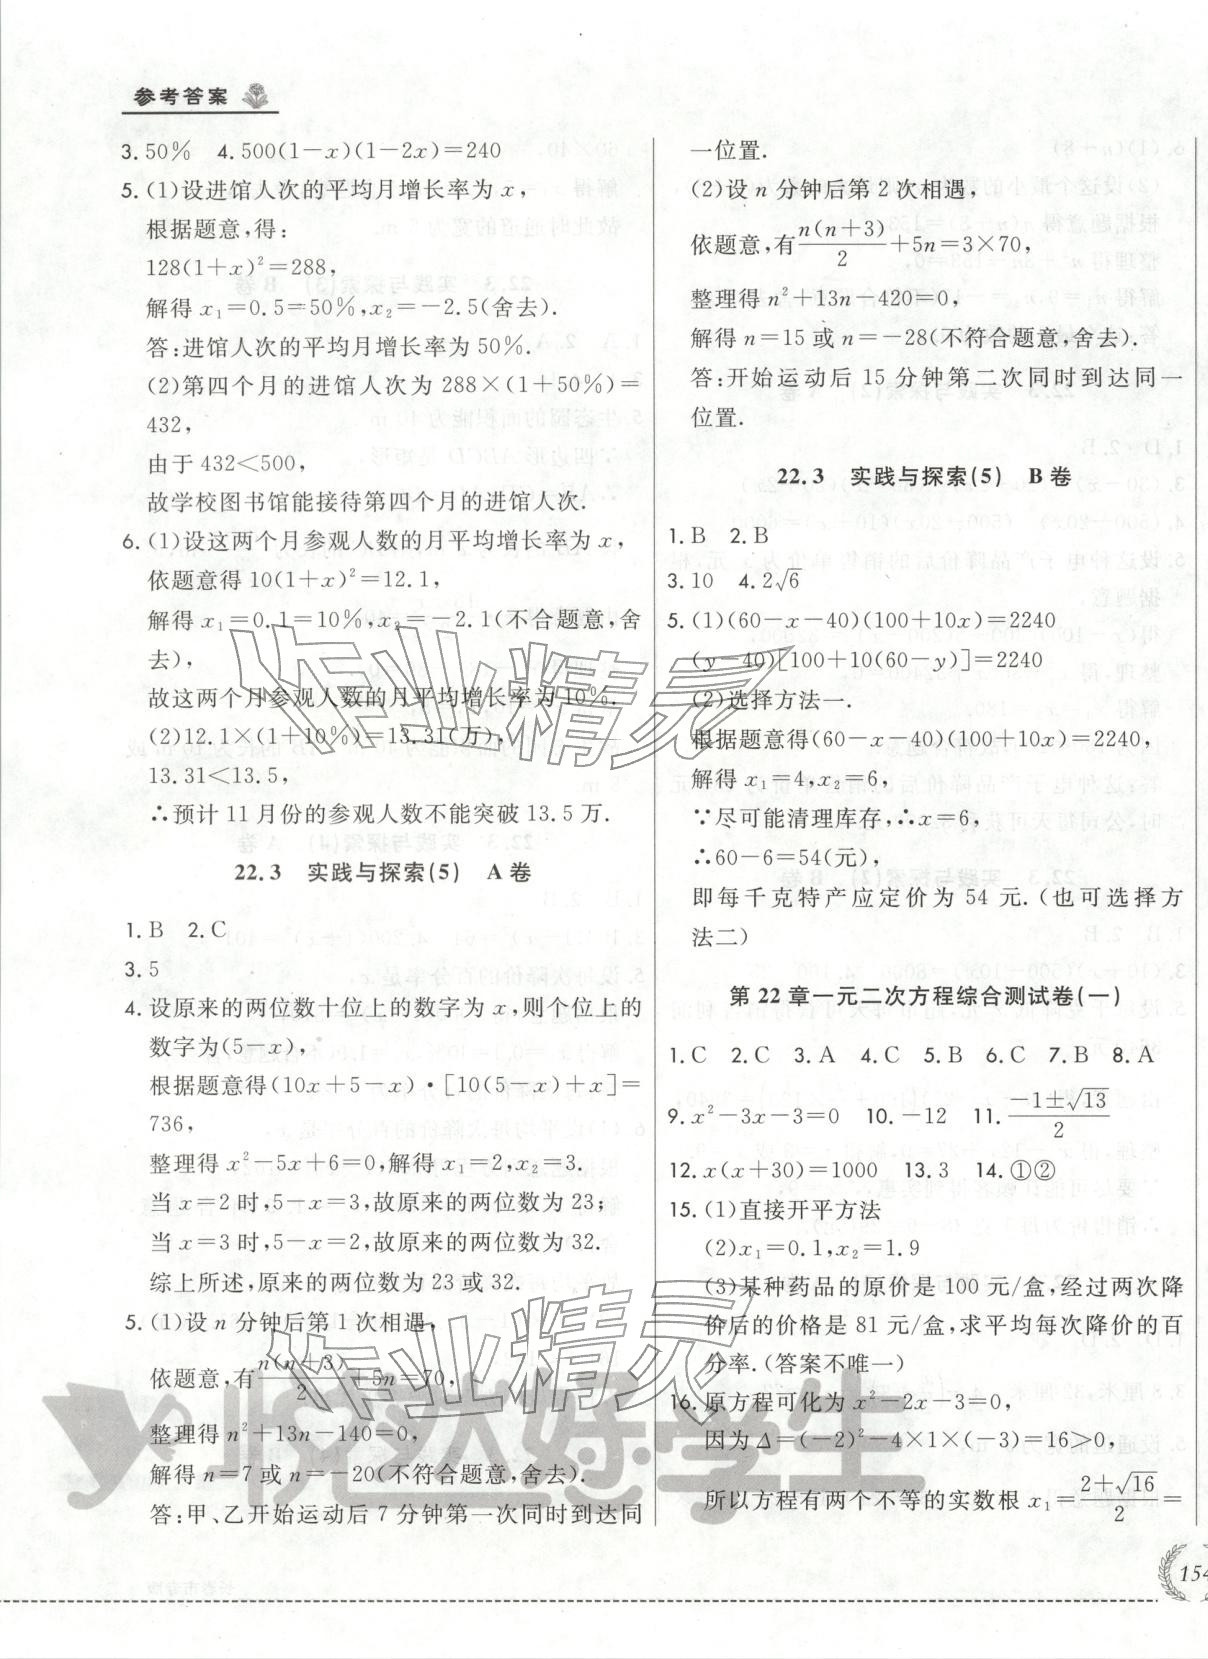 参考答案
3. 50%　4. 500(1-x)(1-2x)=240
5. (1)设进馆人次的平均月增长率为 x,
根据题意,得:
128(1+x)²=288,
解得 x₁=0.5=50%,x₂=-2.5(舍去).
答:进馆人次的平均月增长率为 50%.
(2)第四个月的进馆人次为 288×(1+50%)=
432,
由于 432<500,
故学校图书馆能接待第四个月的进馆人次.
6. (1)设这两个月参观人数的月平均增长率为 x,
依题意得 10(1+x)²=12.1,
解得 x₁=0.1=10%,x₂=-2.1(不合题意,舍
去),
故这两个月参观人数的月平均增长率为 10%.
(2)12.1×(1+10%)=13.31(万),
13.31<13.5,
∴预计 11 月份的参观人数不能突破 13.5 万.
22.3　实践与探索(5)　A 卷
1. B　2. C
3. 5
4. 设原来的两位数十位上的数字为 x,则个位上的
数字为(5-x),
根据题意得(10x+5-x)·[10(5-x)+x]=
736,
整理得 x²-5x+6=0,解得 x₁=2,x₂=3.
当 x=2 时,5-x=3,故原来的两位数为 23;
当 x=3 时,5-x=2,故原来的两位数为 32.
综上所述,原来的两位数为 23 或 32.
5. (1)设 n 分钟后第 1 次相遇,
依题意,有 n(n+3)/2+5n=70,
整理得 n²+13n-140=0,
解得 n=7 或 n=-20(不符合题意,舍去).
答:甲、乙开始运动后 7 分钟第一次同时到达同
一位置.
(2)设 n 分钟后第 2 次相遇,
依题意,有 n(n+3)/2+5n=3×70,
整理得 n²+13n-420=0,
解得 n=15 或 n=-28(不符合题意,舍去).
答:开始运动后 15 分钟第二次同时到达同一
位置.
22.3　实践与探索(5)　B 卷
1. B　2. B
3. 10　4. 2√6
5. (1)(60-x-40)(100+10x)=2240
(y-40)[100+10(60-y)]=2240
(2)选择方法一.
根据题意得(60-x-40)(100+10x)=2240,
解得 x₁=4,x₂=6,
∵尽可能清理库存,∴x=6,
∴60-6=54(元),
即每千克特产应定价为 54 元.(也可选择方
法二)
第 22 章一元二次方程综合测试卷(一)
1. C　2. C　3. A　4. C　5. B　6. C　7. B　8. A
9. x²-3x-3=0　10. -12　11. (-1±√13)/2
12. x(x+30)=1000　13. 3　14. ①②
15. (1)直接开平方法
(2)x₁=0.1,x₂=1.9
(3)某种药品的原价是 100 元/盒,经过两次降
价后的价格是 81 元/盒,求平均每次降价的百
分率.(答案不唯一)
16. 原方程可化为 x²-2x-3=0,
因为 Δ=(-2)²-4×1×(-3)=16>0,
所以方程有两个不等的实数根 x₁=(2+√16)/2=
154
作业精灵
作业精灵
悦达好学生